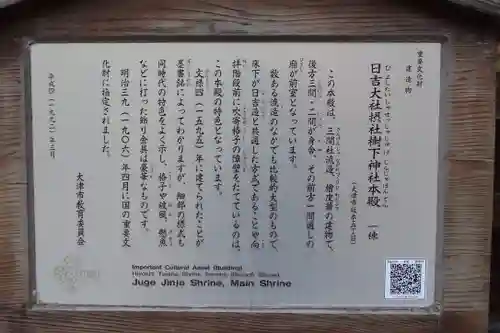 重要文化財
建造物
日吉大社摂社樹下神社本殿 一棟
ひよしたいしゃせっしゃじゅげじんじゃほんでん
(大津市坂本五丁目)
この本殿は、三間社流造、檜皮葺の建物で、
後方三間・二間が身舎、その前方一間通しの
廂が前室となっています。
数ある流造のなかでも比較的大型のもので
床下が日吉造と共通した方式であることや向
拝階段前に吹寄格子の障壁をたてているのは、
この本殿の特色となっています。
文禄四(一五九五)年に建てられたことが
墨書銘によってわかりますが、細部の様式も
同時代の特色をよく示し、格子や破風、懸魚
などに打った飾り金具は豪華なものです。
明治三九(一九〇六)年四月に国の重要文
化財に指定されました。
大津市教育委員会
平成四(一九九二)年三月
Important Cultural Asset (Building)
Juge Jinja Shrine, Main Shrine